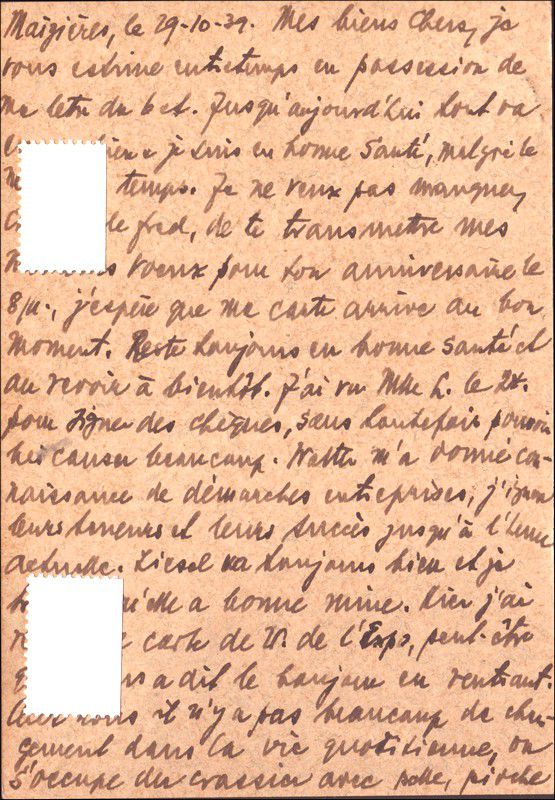 Maizières, le 29-10-39. Mes biens Chers, je
vous estime entretemps en possession de
ma lettre du 6 ct. Jusqu'aujourd'hui tout va
bien & je suis en bonne santé, malgré le
temps. Je ne veux pas manquer,
fred, de te transmettre mes
voeux pour ton anniversaire le
8/11., j'espère que ma carte arrive au bon
moment. Reste toujours en bonne santé et
au revoir à bientôt. J'ai vu Mlle L. le 24.
pour signer des chèques, sans toutefois pouvoir
causer beaucoup. Walter m'a donné con-
naissance de démarches entreprises, j'ignore
leurs teneurs et leurs succès jusqu'à l'heure
actuelle. Liesel va toujours bien et je
qu'elle a bonne mine. Hier j'ai
carte de W. de l'Expo, peut-être
a dit le bonjour en rentrant.
nous il n'y a pas beaucoup de chan-
gement dans la vie quotidienne, on
s'occupe du crassier avec pelle, pioche